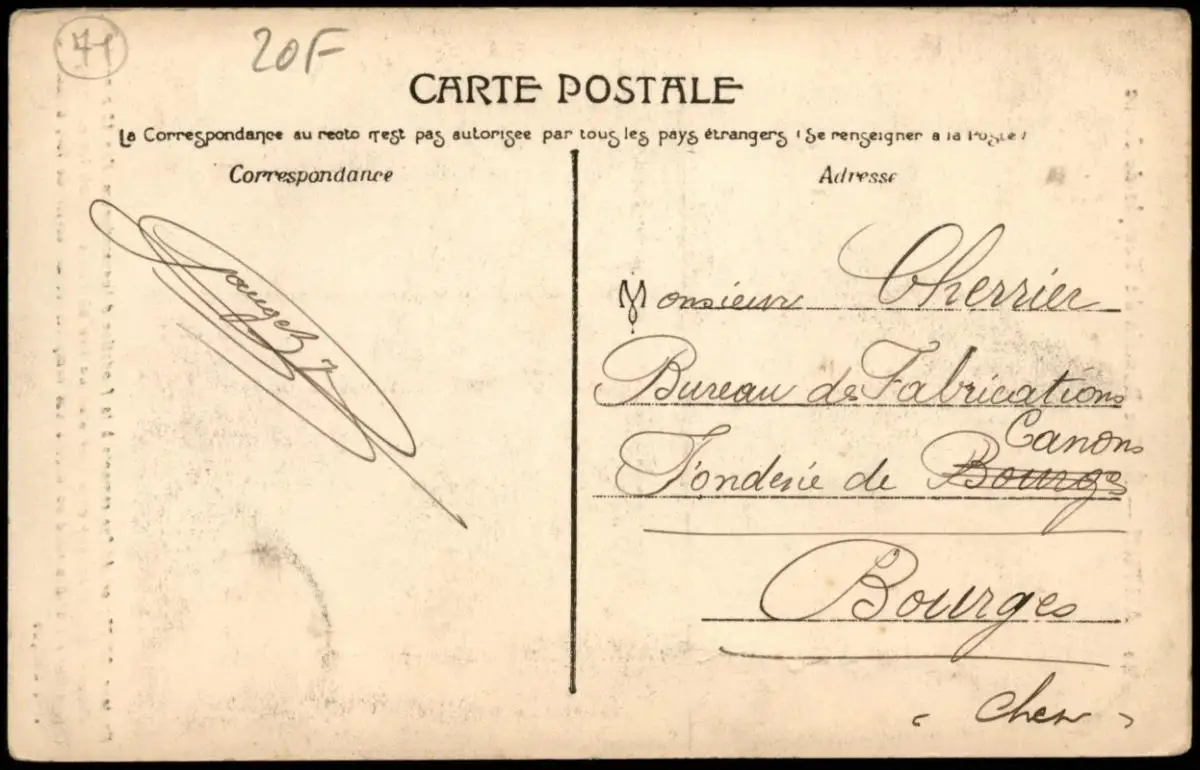 71
20F
CARTE POSTALE
La Correspondance au recto n'est pas autorisée par tous les pays étrangers (Se renseigner à la Poste)
Correspondance
Adresse
Monsieur Cherrier
Bureau de Fabrications
Canons
Fonderie de Bourges
Bourges
(Cher)